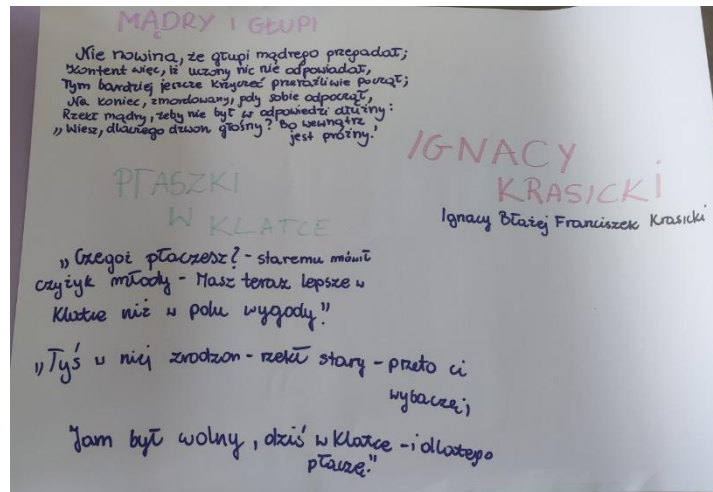 MĄDRY I GŁUPI
Nie nowina, że głupi mądrego przegadał;
Kontent więc, iż uczony nic nie odpowiadał,
Tym bardziej jeszcze krzyczeć przeraźliwie począł;
Na koniec, zmordowany, gdy sobie odpoczął,
Rzekł mądry, żeby nie był w odpowiedzi dłużny:
„Wiesz, dlaczego dzwon głośny? Bo wewnątrz
jest próżny."
IGNACY
KRASICKI
Ignacy Błażej Franciszek Krasicki
PTASZKI
W KLATCE
„Czegoż płaczesz? - staremu mówił
czyżyk młody - Masz teraz lepsze w
klatce niż w polu wygody."
„Tyś w niej zrodzon - rzekł stary - przeto ci
wybaczę;
Jam był wolny, dziś w klatce - i dlatego
płaczę."